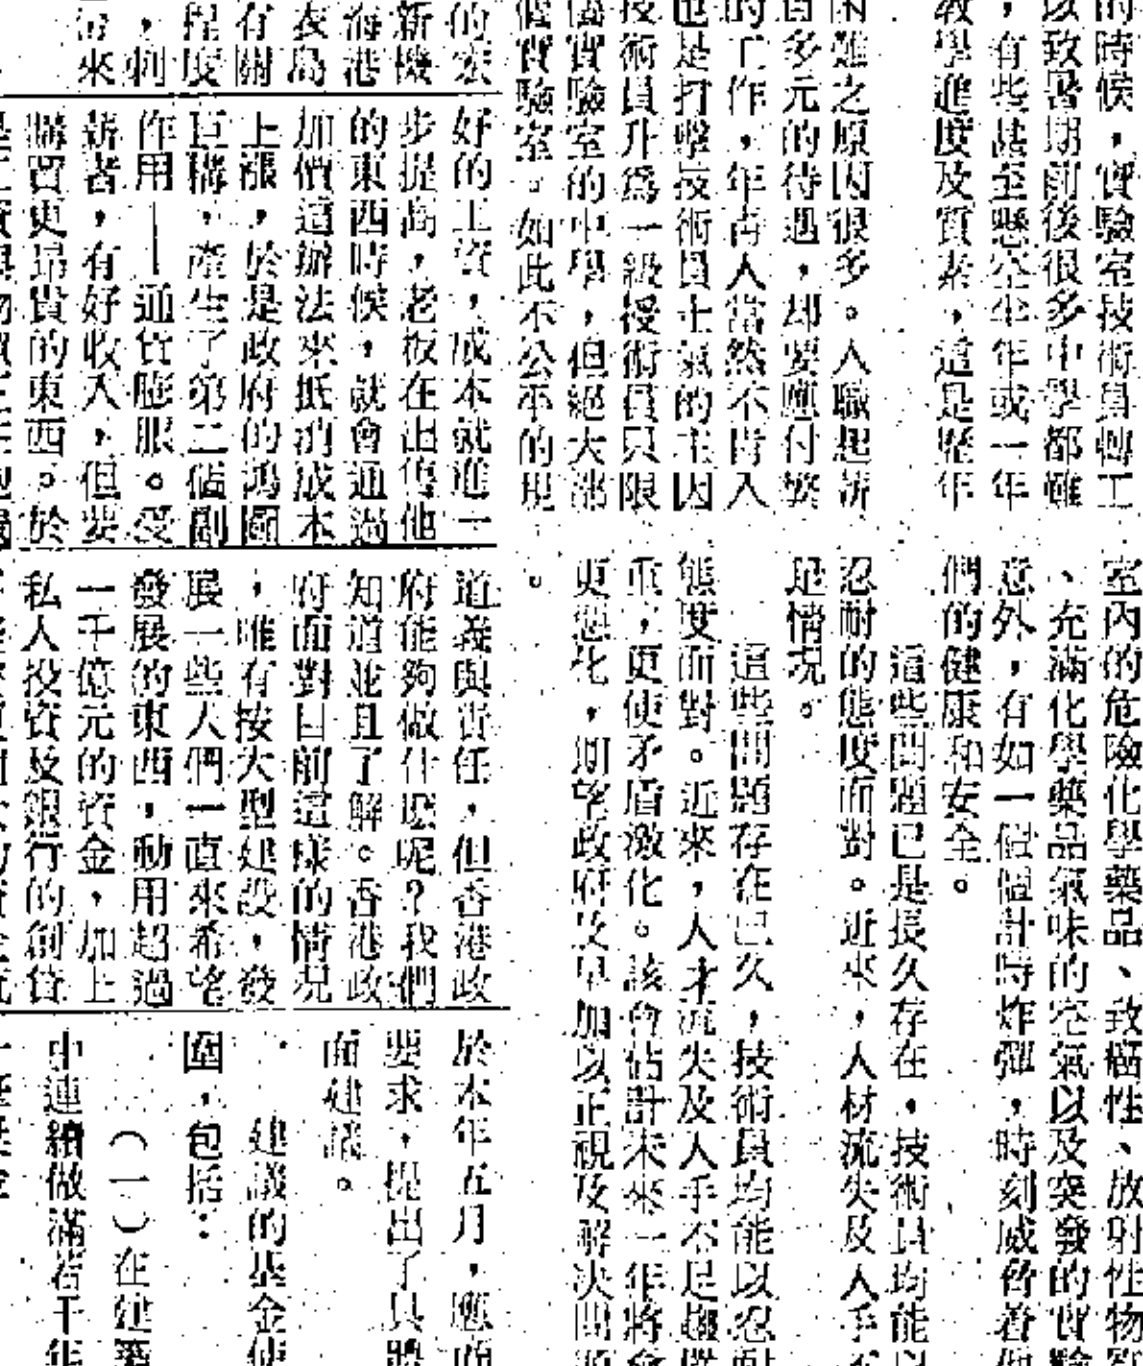 的時候，實驗室技術員轉工
以致暑期前後很多中學都難
，有些甚至懸空半年或一年
教學進度及質素，這是歷年
困難之原因很多。入職起薪
百多元的待遇，却要應付繁
的工作，年靑人當然不肯入
也是打擊技術員士氣的主因
技術員升爲一級技術員只限
備實驗室的中學，但絕大部
個實驗室。如此不公平的現
室內的危險化學藥品、致癌性、放射性物
、充滿化學藥品氣味的空氣以及突發的實驗
意外，有如一個個計時炸彈，時刻威脅着他
們的健康和安全。
這些問題已是長久存在，技術員均能以
忍耐的態度面對。近來，人材流失及人手不
是情況。
這些問題存在已久，技術員均能以忍耐
態度面對。近來，人才流失及人手不足趨
重，更使矛盾激化。該會估計未來一年將會
更惡化，期望政府及早加以正視及解決問題
。
的宏
新機
海港
衣島
有關
程度
，刺
帶來
好的工資，成本就進一
步提高，老板在出售他
的東西時候，就會通過
加價這辦法來抵消成本
上漲，於是政府的鴻圖
巨構，產生了第二個副
作用——通貨膨脹。受
薪者，有好收入，但要
購買更昂貴的東西。於
道義與責任，但香港政
府能夠做什麼呢？我們
知道並且了解。香港政
府面對目前這樣的情况
，唯有按大型建設，發
展一些人們一直來希望
發展的東西，動用超過
一千億元的資金，加上
私人投資及銀行的創貸
於本年五月，應
要求，提出了具體
面建議。
建議的基金使
圍，包括：
（一）在建築
中連續做滿若干年